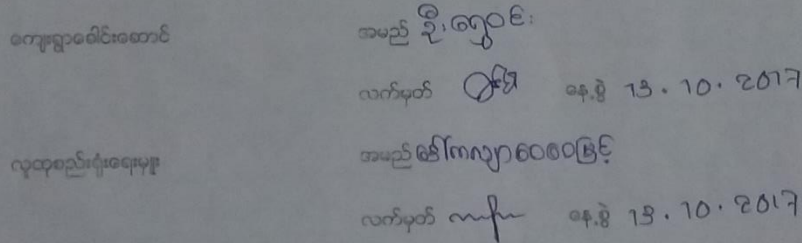 ကျေးရွာခေါင်းဆောင် အမည် ဦးရွှေဝင်း
လက်မှတ် နေ့စွဲ 13.10.2017
လူထုစည်းရုံးရေးမှူး အမည် ဒေါ်ကလျာဝေဝေဖြင့်
လက်မှတ် နေ့စွဲ 13.10.2017